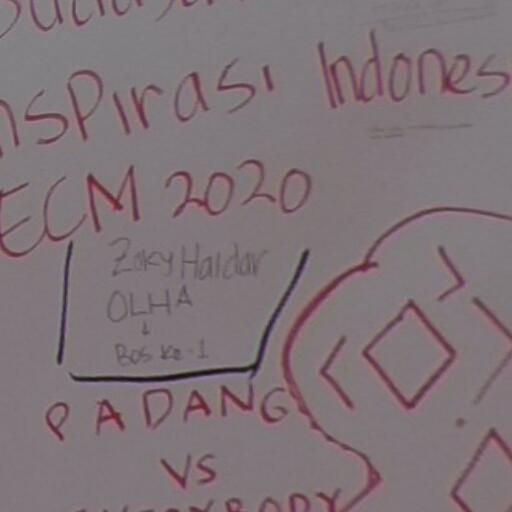 nspirasi Indones
ECM 2020
Zaky Haidar
OLHA
Bos Ke-1
PADANG
VS